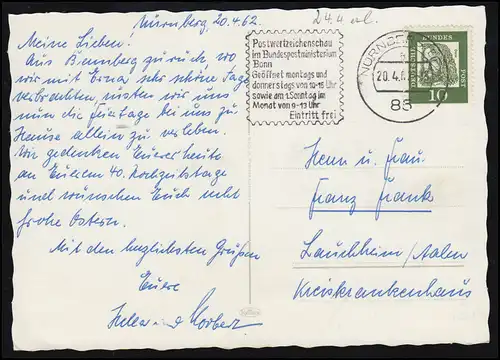 Nürnberg, 20.4.62.
Meine Lieben!
Aus Bamberg zurück, wo
wir mit Erna sehr schöne Tage
verbrachten, rüsten wir uns
nun die Feiertage bei uns zu
Hause allein zu verleben.
Wir gedenken Euerer heute
an Euerem 40. Hochzeitstage
und wünschen Euch recht
frohe Ostern.
Mit den herzlichsten Grüßen
Euere
und Norbert
24.4.
Postwertzeichenschau
im Bundespostministerium
Bonn
Geöffnet montags und
donnerstags von 10-16 Uhr
sowie am 1.Sonntag im
Monat von 9-13 Uhr
Eintritt frei
NÜRNBERG
20.4.6
85
DEUTSCHE BUNDESPOST
10
Herrn u. Frau
Franz Frank
Lauchheim/Aalen
Kreiskrankenhaus